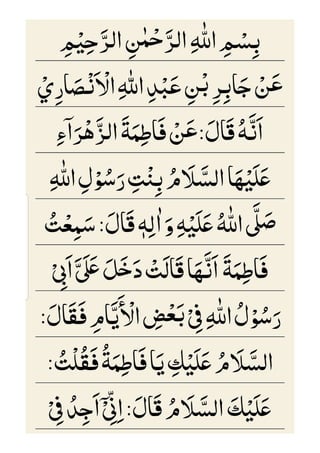 بِسْمِ اللهِ الرَّحْمٰنِ الرَّحِيْمِ
عَنْ جَابِرِ بْنِ عَبْدِ اللهِ الْاَنْصَارِيْ
اَنَّہُ قَالَ:عَنْ فَاطِمَةَ الزَّهْرَآءِ
عَلَيْهَا السَّلَامُ بِنْتِ رَسُوْلِ اللهِ
صَلَّی اللهُ عَلَيْهِ وَ اٰلِہٖ قَالَ: سَمِعْتُ
فَاطِمَةَ اَنَّهَا قَالَتْ دَخَلَ عَلَیَّ اَبِیْ
رَسُوْلُ اللهِ فِیْ بَعْضِ الْاَيَّامِ فَقَالَ:
السَّلَامُ عَلَيْكِ يَا فَاطِمَةُ فَقُلْتُ:
عَلَيْكَ السَّلَامُ قَالَ: اِنِّیْٓ اَجِدُ فِیْ